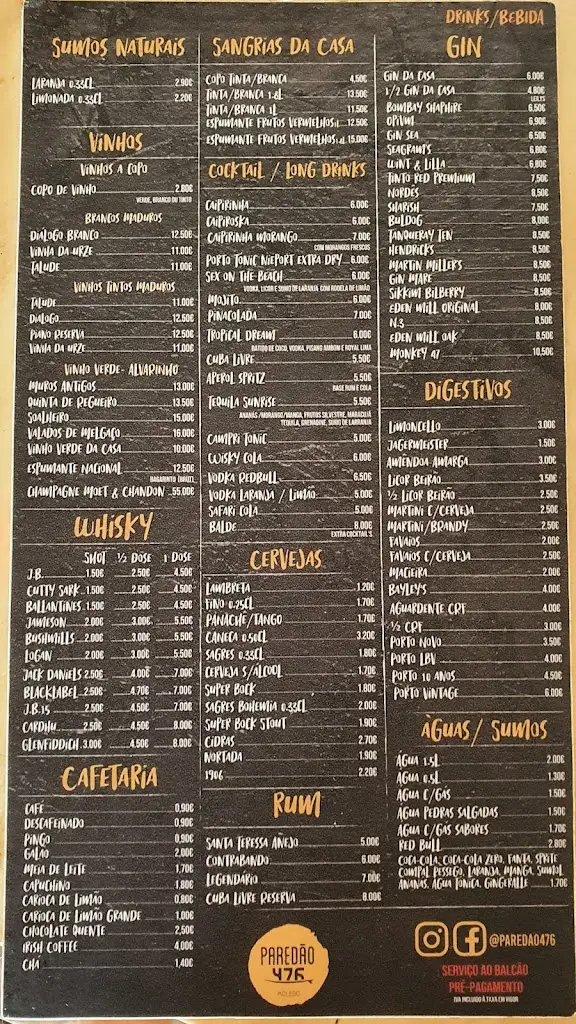 DRINKS/BEBIDA
SUMOS NATURAIS
LARANJA 0.33CL 2.90€
LIMONADA 0.33CL 2.20€
VINHOS
VINHOS A COPO
COPO DE VINHO 2.80€
VERDE, BRANCO OU TINTO
BRANCOS MADUROS
DIALOGO BRANCO 12.50€
VINHA DA URZE 11.00€
TALUDE 11.00€
VINHOS TINTOS MADUROS
TALUDE 11.00€
DIALOGO 12.50€
PIANO RESERVA 12.50€
VINHA DA URZE 11.00€
VINHO VERDE- ALVARINHO
MUROS ANTIGOS 13.00€
QUINTA DE REGUEIRO 13.50€
SOALHEIRO 15.00€
VALADOS DE MELGAÇO 16.00€
VINHO VERDE DA CASA 10.00€
ESPUMANTE NACIONAL 12.50€
CHAMPAGNE MOET & CHANDON 55.00€
WHISKY
SHOT ½ DOSE 1 DOSE
J.B. 1.50€ 2.50€ 4.50€
CUTTY SARK 1.50€ 2.50€ 4.50€
BALLANTINES 1.50€ 2.50€ 4.50€
JAMESON 2.00€ 3.00€ 5.50€
BUSHMILLS 2.00€ 3.00€ 5.50€
LOGAN 2.00€ 3.00€ 5.50€
JACK DANIELS 2.50€ 4.00€ 7.00€
BLACKLABEL 2.50€ 4.70€ 7.00€
J.B.15 2.50€ 4.50€ 7.00€
CARDHU 2.50€ 4.50€ 8.00€
GLENFIDDICH 3.00€ 4.50€ 8.00€
CAFETARIA
CAFE 0,90€
DESCAFEINADO 0,90€
PINGO 0,90€
GALAO 2.00€
MEIA DE LEITE 1.70€
CAPUCHINO 1.80€
CARIOCA DE LIMÃO 0.80€
CARIOCA DE LIMÃO GRANDE 1.00€
CHOCOLATE QUENTE 2.50€
IRISH COFFEE 4,00€
CHÁ 1,40€
SANGRIAS DA CASA
COPO TINTA/BRANCA 4,50€
TINTA/BRANCA 1.8L 13.50€
TINTA/BRANCA 1L 11.50€
ESPUMANTE FRUTOS VERMELHOS1L 12.50€
ESPUMANTE FRUTOS VERMELHOS1,8L 15.00€
COCKTAIL / LONG DRINKS
CAIPIRINHA 6.00€
CAIPIROSKA 6.00€
CAIPIRINHA MORANGO 7.00€
COM MORANGOS FRESCOS
PORTO TONIC NIEPORT EXTRA DRY 6.00€
SEX ON THE BEACH 6.00€
VODKA, LICOR E SUMO DE LARANJA COM RODELA DE LIMÃO
MOJITO 6.00€
PINACOLADA 7.00€
TROPICAL DREAM 6.00€
BATIDO DE COCO, VODKA, PISANG AMBOM E ROYAL LIMA
CUBA LIVRE 5.50€
APEROL SPRITZ 5.50€
BASE RUM E COLA
TEQUILA SUNRISE 5.50€
ANANÁS /MORANGO/MANGA, FRUTOS SILVESTRE, MARACUJÁ
TEQUILA, GRENADINE, SUMO DE LARANJA
CAMPRI TONIC 5.00€
WISKY COLA 6.00€
VODKA REDBULL 6.50€
VODKA LARANJA / LIMÃO 5.00€
SAFARI COLA 5.00€
BALDE 8.00€
EXTRA COCKTAIL'S
CERVEJAS
LAMBRETA 1.20€
FINO 0.25CL 1.70€
PANACHE/TANGO 1.70€
CANECA 0.50CL 3.20€
SAGRES 0.33CL 1.80€
CERVEJA S/ALCOOL 1.70€
SUPER BOCK 1.80€
SAGRES BOHEMIA 0.33CL 2.00€
SUPER BOCK STOUT 1.90€
CIDRAS 2.70€
NORTADA 1.90€
1906 2.20€
RUM
SANTA TERESSA AÑEJO 5.00€
CONTRABANDO 6.00€
LEGENDARIO 7.00€
CUBA LIVRE RESERVA 8.00€
PAREDÃO
476
MOLEDO
GIN
GIN DA CASA 6.00€
1/2 GIN DA CASA 4.80€
BOMBAY SHAPHIRE 6,50€
OPIVM 6,90€
GIN SEA 6,50€
SEAGRAM'S 6,80€
WINT & LILLA 6,80€
TINTO RED PREMIUM 7,50€
NORDES 8,50€
SHARISH 7,50€
BULDOG 8,00€
TANQUERAY TEN 8,50€
HENDRICKS 8,50€
MARTIN MILLERS 8,50€
GIN MARE 8,50€
SIKKIM BILBERRY 8,50€
EDEN MILL ORIGINAL 8,00€
N.3 8,50€
EDEN MILL OAK 8,50€
MONKEY 47 10,50€
DIGESTIVOS
LIMONCELLO 3.00€
JAGERMEISTER 1.50€
AMENDOA AMARGA 3.00€
LICOR BEIRAO 3.50€
½ LICOR BEIRAO 2.50€
MARTINI C/CERVEJA 2.50€
MARTINI/BRANDY 2.50€
FAVAIOS 2.00€
FAVAIOS C/CERVEJA 2.50€
MACIEIRA 2.00€
BAYLEY'S 4.00€
AGUARDENTE CRF 4.00€
½ CRF 3.00€
PORTO NOVO 3.50€
PORTO LBV 4.00€
PORTO 10 ANOS 4.50€
PORTO VINTAGE 6.00€
ÀGUAS/ SUMOS
ÁGUA 1.5L 2.00€
ÁGUA 0.5L 1.30€
ÁGUA C/GÁS 1.50€
ÁGUA PEDRAS SALGADAS 1.50€
ÁGUA C/GÁS SABORES 1.70€
RED BULL 2.80€
COCA-COLA, COCA-COLA ZERO, FANTA, SPRITE
COMPAL PESSEGO, LARANJA, MANGA, SUMOL
ANANAS, AGUA TONICA, GINGERALLE 1.70€
@PAREDAO476
SERVIÇO AO BALCÃO
PRÉ-PAGAMENTO
IVA INCLUIDO À TAXA EM VIGOR